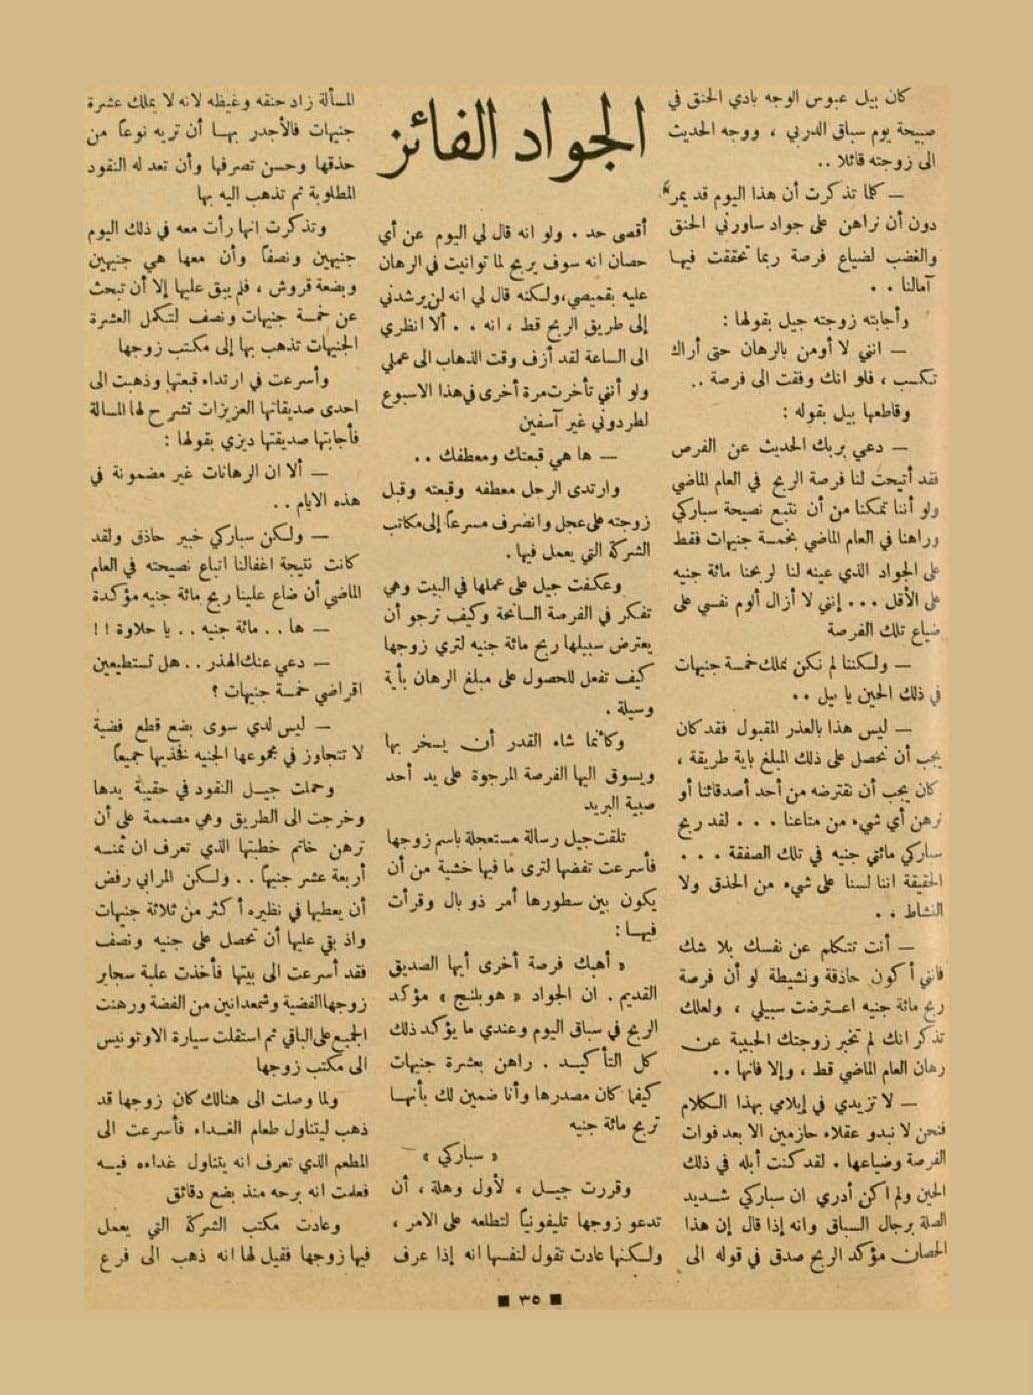 الجواد الفائز
كان بيل عبوس الوجه بادي الحنق في
صبيحة يوم سباق الدربي ، ووجه الحديث
الى زوجته قائلا ..
— كلما تذكرت أن هذا اليوم قد يمر
دون أن نراهن على جواد ساورني الحنق
والغضب لضياع فرصة ربما تحققت فيها
آمالنا . .
وأجابته زوجته جيل بقولها :
— انني لا أومن بالرهان حتى أراك
تكسب ، فلو انك وفقت الى فرصة ..
وقاطعها بيل بقوله :
— دعي بربك الحديث عن الفرص
فقد أتيحت لنا فرصة الربح في العام الماضي
ولو أننا تمكنا من أن نتبع نصيحة سباركي
وراهنا في العام الماضي بخمسة جنيهات فقط
على الجواد الذي عينه لنا لربحنا مائة جنيه
على الأقل ... إنني لا أزال ألوم نفسي على
ضياع تلك الفرصة
— ولكننا لم نكن نملك خمسة جنيهات
في ذلك الحين يا بيل ..
— ليس هذا بالعذر المقبول فقد كان
يجب أن نحصل على ذلك المبلغ باية طريقة ،
كان يجب أن نقترضه من أحد أصدقائنا أو
نرهن أي شيء من متاعنا . . . لقد ربح
سباركي مائتي جنيه في تلك الصفقة . . .
الحقيقة اننا لسنا على شيء من الحذق ولا
النشاط . .
— أنت تتكلم عن نفسك بلا شك
فانني أكون حاذقة ونشيطة لو أن فرصة
ربح مائة جنيه اعترضت سبيلي ، ولعلك
تذكر انك لم تخبر زوجتك الحبيبة عن
رهان العام الماضي قط ، وإلا فانها ..
— لا تزيدي في إيلامي بهذا الكلام
فنحن لا نبدو عقلاء حازمين الا بعد فوات
الفرصة وضياعها . لقد كنت أبله في ذلك
الحين ولم اكن أدري ان سباركي شديد
الصلة برجال السباق وانه إذا قال إن هذا
الحصان مؤكد الربح صدق في قوله الى
أقصى حد . ولو انه قال لي اليوم عن أي
حصان انه سوف يربح لما توانيت في الرهان
عليه بقميصي، ولكنه قال لي انه لن يرشدني
إلى طريق الربح قط ، انه . . ألا انظري
الى الساعة لقد أزف وقت الذهاب الى عملي
ولو أنني تأخرت مرة أخرى في هذا الاسبوع
لطردوني غير آسفين
— ها هي قبعتك ومعطفك . .
وارتدى الرجل معطفه وقبعته وقبل
زوجته على عجل وانصرف مسرعاً إلى مكاتب
الشركة التي يعمل فيها .
وعكفت جيل على عملها في البيت وهي
تفكر في الفرصة السانحة وكيف ترجو أن
يعترض سبيلها ربح مائة جنيه لترى زوجها
كيف تفعل للحصول على مبلغ الرهان بأية
وسيلة .
وكأنما شاء القدر أن يسخر بها
ويسوق اليها الفرصة المرجوة على يد أحد
صبية البريد
تلقت جيل رسالة مستعجلة باسم زوجها
فأسرعت تفضها لترى ما فيها خشية من أن
يكون بين سطورها أمر ذو بال وقرأت
فيها :
« أهبك فرصة أخرى أيها الصديق
القديم . ان الجواد « هوبلنج » مؤكد
الربح في سباق اليوم وعندي ما يؤكد ذلك
كل التأكيد . راهن بعشرة جنيهات
كيفما كان مصدرها وأنا ضمين لك بأنها
تربح مائة جنيه
« سباركي »
وقررت جيل ، لأول وهلة ، أن
تدعو زوجها تليفونياً لتطلعه على الامر ،
ولكنها عادت تقول لنفسها انه إذا عرف
المسألة زاد حنقه وغيظه لانه لا يملك عشرة
جنيهات فالأجدر بها أن تريه نوعاً من
حذقها وحسن تصرفها وأن تعد له النقود
المطلوبة ثم تذهب اليه بها
وتذكرت انها رأت معه في ذلك اليوم
جنيهين ونصفاً وأن معها هي جنيهين
وبضعة قروش ، فلم يبق عليها إلا أن تبحث
عن خمسة جنيهات ونصف لتكمل العشرة
الجنيهات تذهب بها إلى مكتب زوجها
وأسرعت في ارتداء قبعتها وذهبت الى
احدى صديقاتها العزيزات تشرح لها المسألة
فأجابتها صديقتها ديزي بقولها :
— ألا ان الرهانات غير مضمونة في
هذه الايام ..
— ولكن سباركي خبير حاذق ولقد
كانت نتيجة اغفالنا اتباع نصيحته في العام
الماضي أن ضاع علينا ربح مائة جنيه مؤكدة
— ها . . مائة جنيه . . يا حلاوة ! !
— دعي عنك الهذر . . هل تستطيعين
اقراضي خمسة جنيهات ؟
— ليس لدي سوى بضع قطع فضية
لا تتجاوز في مجموعها الجنيه فخذيها جميعاً
وحملت جيل النقود في حقيبة يدها
وخرجت الى الطريق وهي مصممة على أن
ترهن خاتم خطبتها الذي تعرف ان ثمنه
أربعة عشر جنيهاً . . ولكن المرابي رفض
أن يعطيها في نظيره أكثر من ثلاثة جنيهات
واذ بقي عليها أن تحصل على جنيه ونصف
فقد أسرعت الى بيتها فأخذت علبة سجاير
زوجها الفضية وشمعدانين من الفضة ورهنت
الجميع على الباقي ثم استقلت سيارة الاوتوبيس
الى مكتب زوجها
ولما وصلت الى هنالك كان زوجها قد
ذهب ليتناول طعام الغداء فأسرعت الى
المطعم الذي تعرف انه يتناول غداءه فيه
فعلمت انه برحه منذ بضع دقائق
وعادت مكتب الشركة التي يعمل
فيها زوجها فقيل لها انه ذهب الى فرع
■ ٣٥ ■